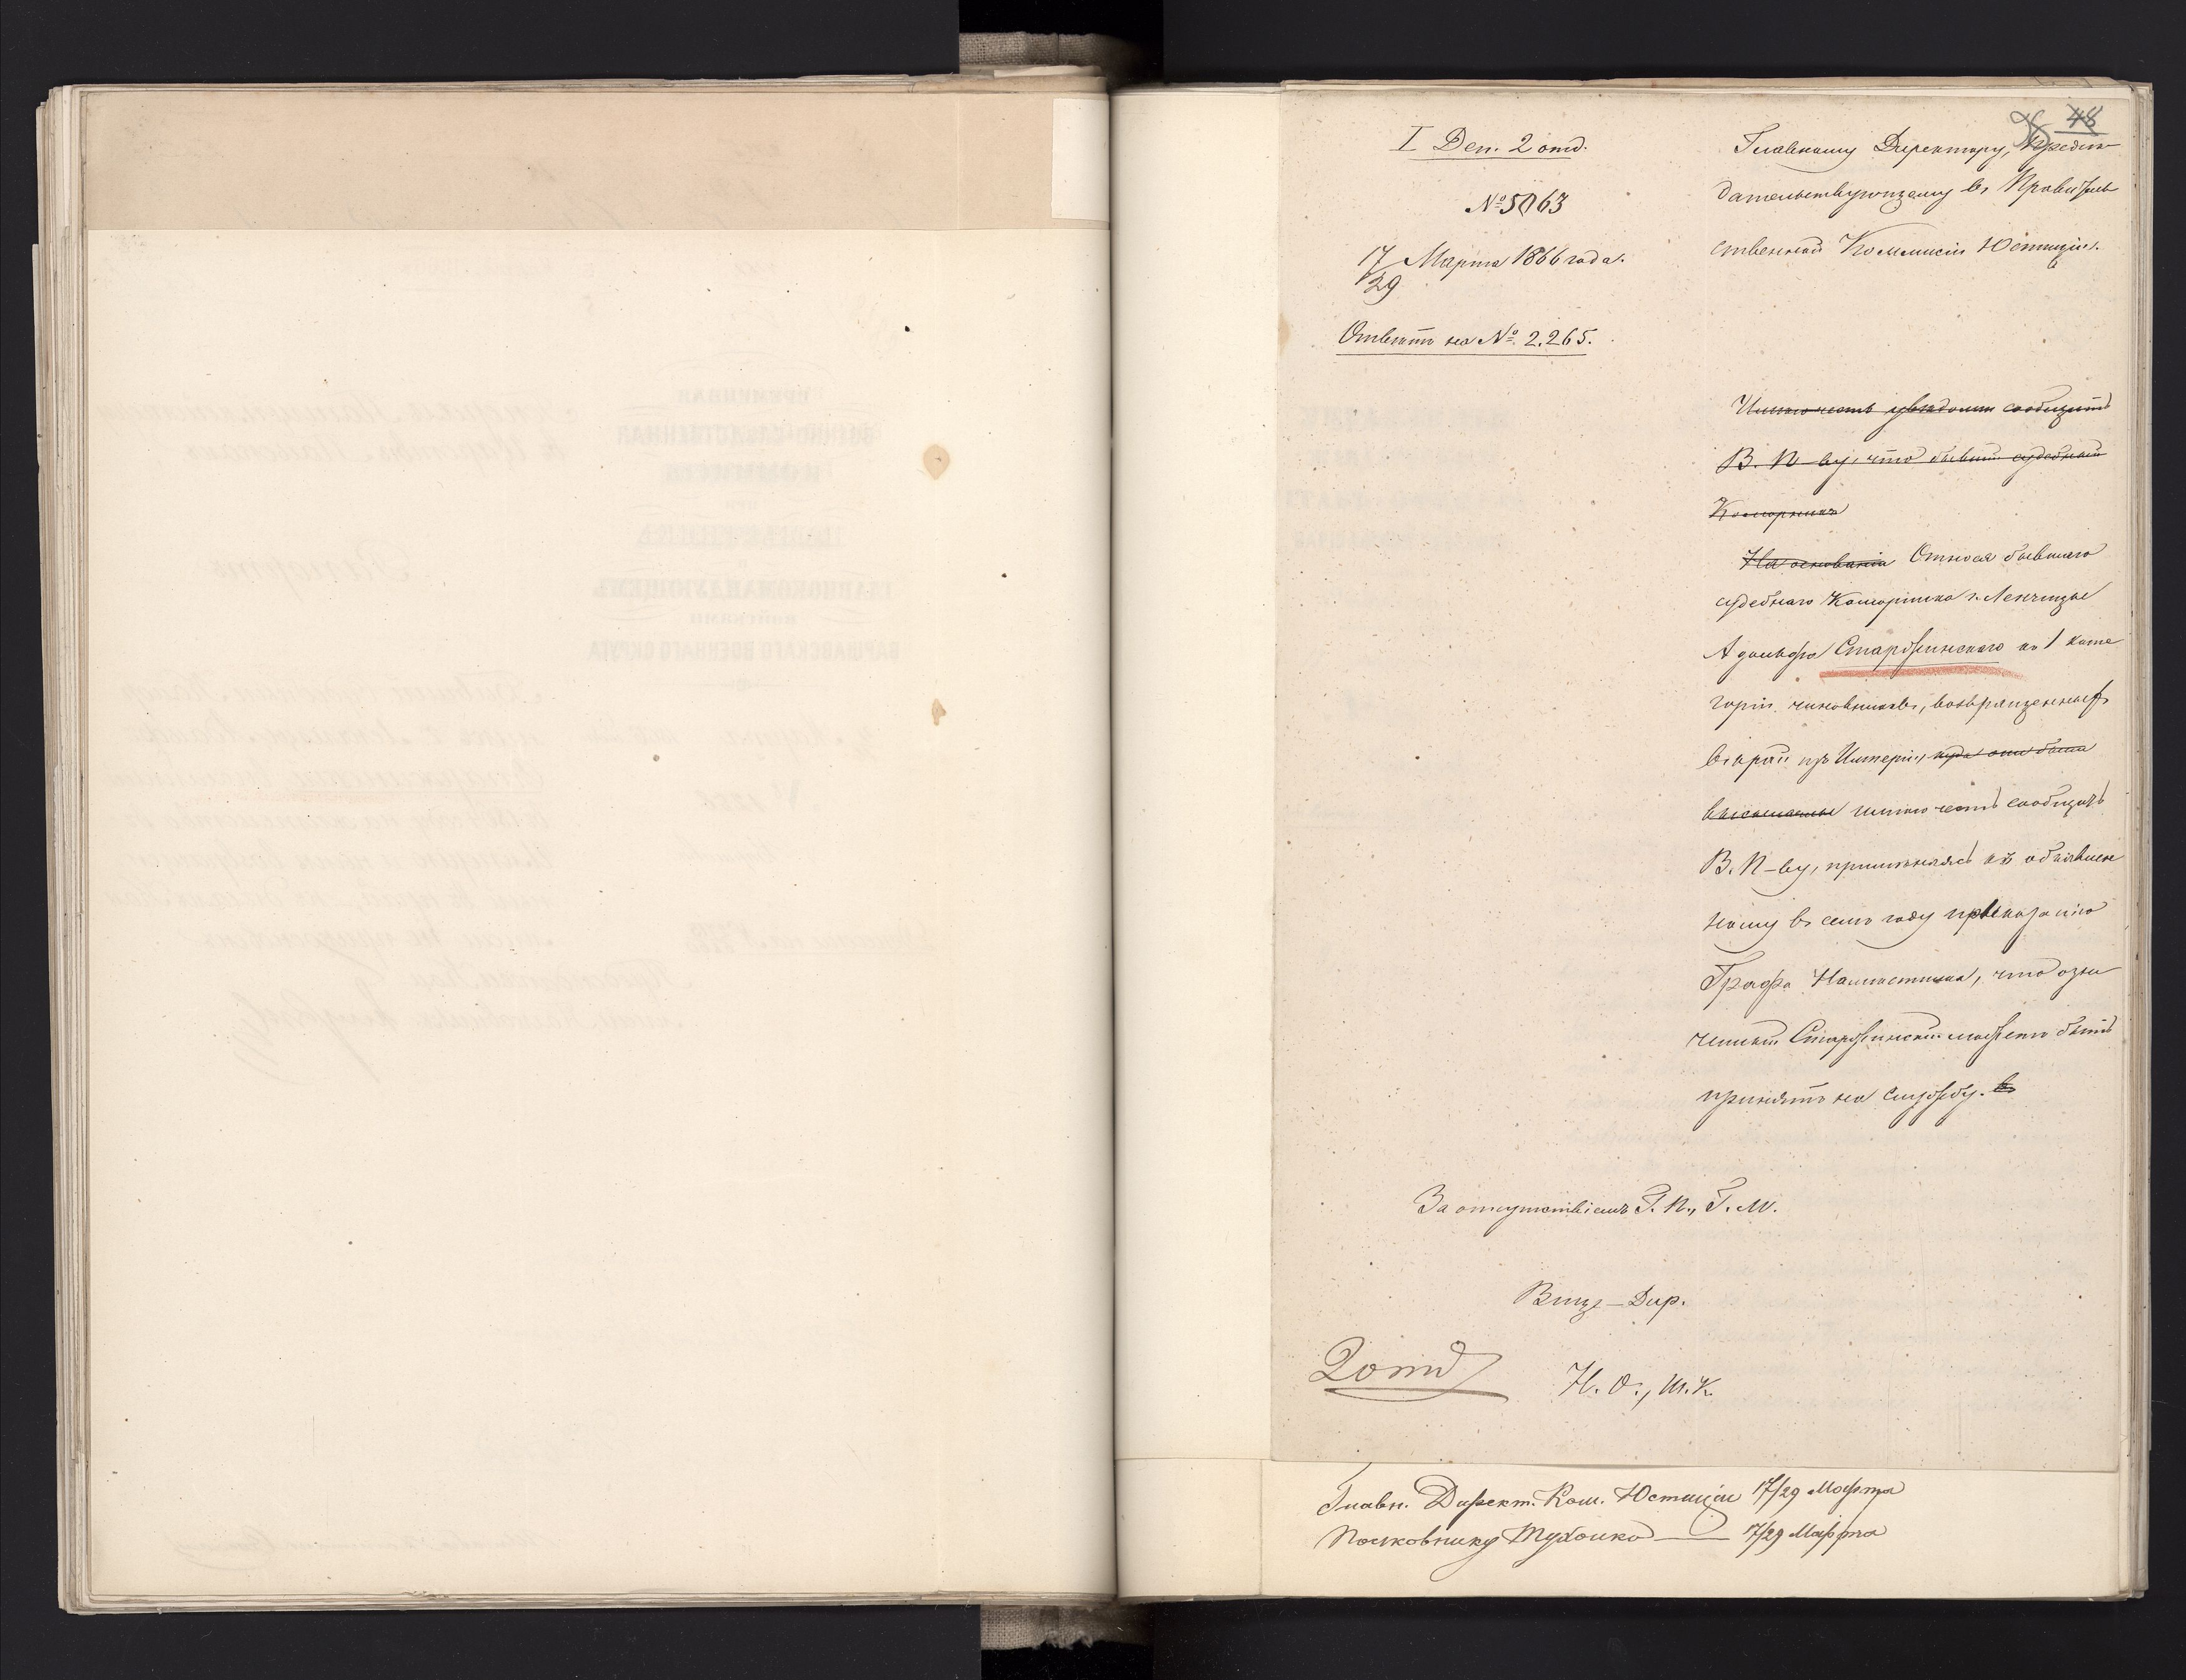 48
I Деп. 2 отд.
№ 5063
17/29 Марта 1866 года.
Отвѣтъ на № 2,265.
Главному Директору, Предсѣ-
дательствующему въ Правитель-
ственной Коммисіи Юстиціи.
Имѣю честь увѣдомить сообщить
В. П-ву, что бывшій судебный
Коморникъ
На основаніи Относя бывшаго
судебнаго Коморника г. Ленчицы
Адольфа Старжинскаго къ 1 кате
горіи чиновниковъ, возвращенныхъ
въ край изъ Имперіи, куда они были
высыланы имѣю честь сообщить
В. П-ву, примѣняясь къ объявлен
ному въ семъ году приказанію
Графа Намѣстника, что озна
ченный Старжинскій можетъ быть
принятъ на службу. въ
За отсутствіемъ Г. П., Г. М.
Вице-Дир.
2 отд
Н. О., Ш. К.
Главн. Директ. Ком. Юстиціи 17/29 Марта
Полковнику Тухолко — 17/29 Марта